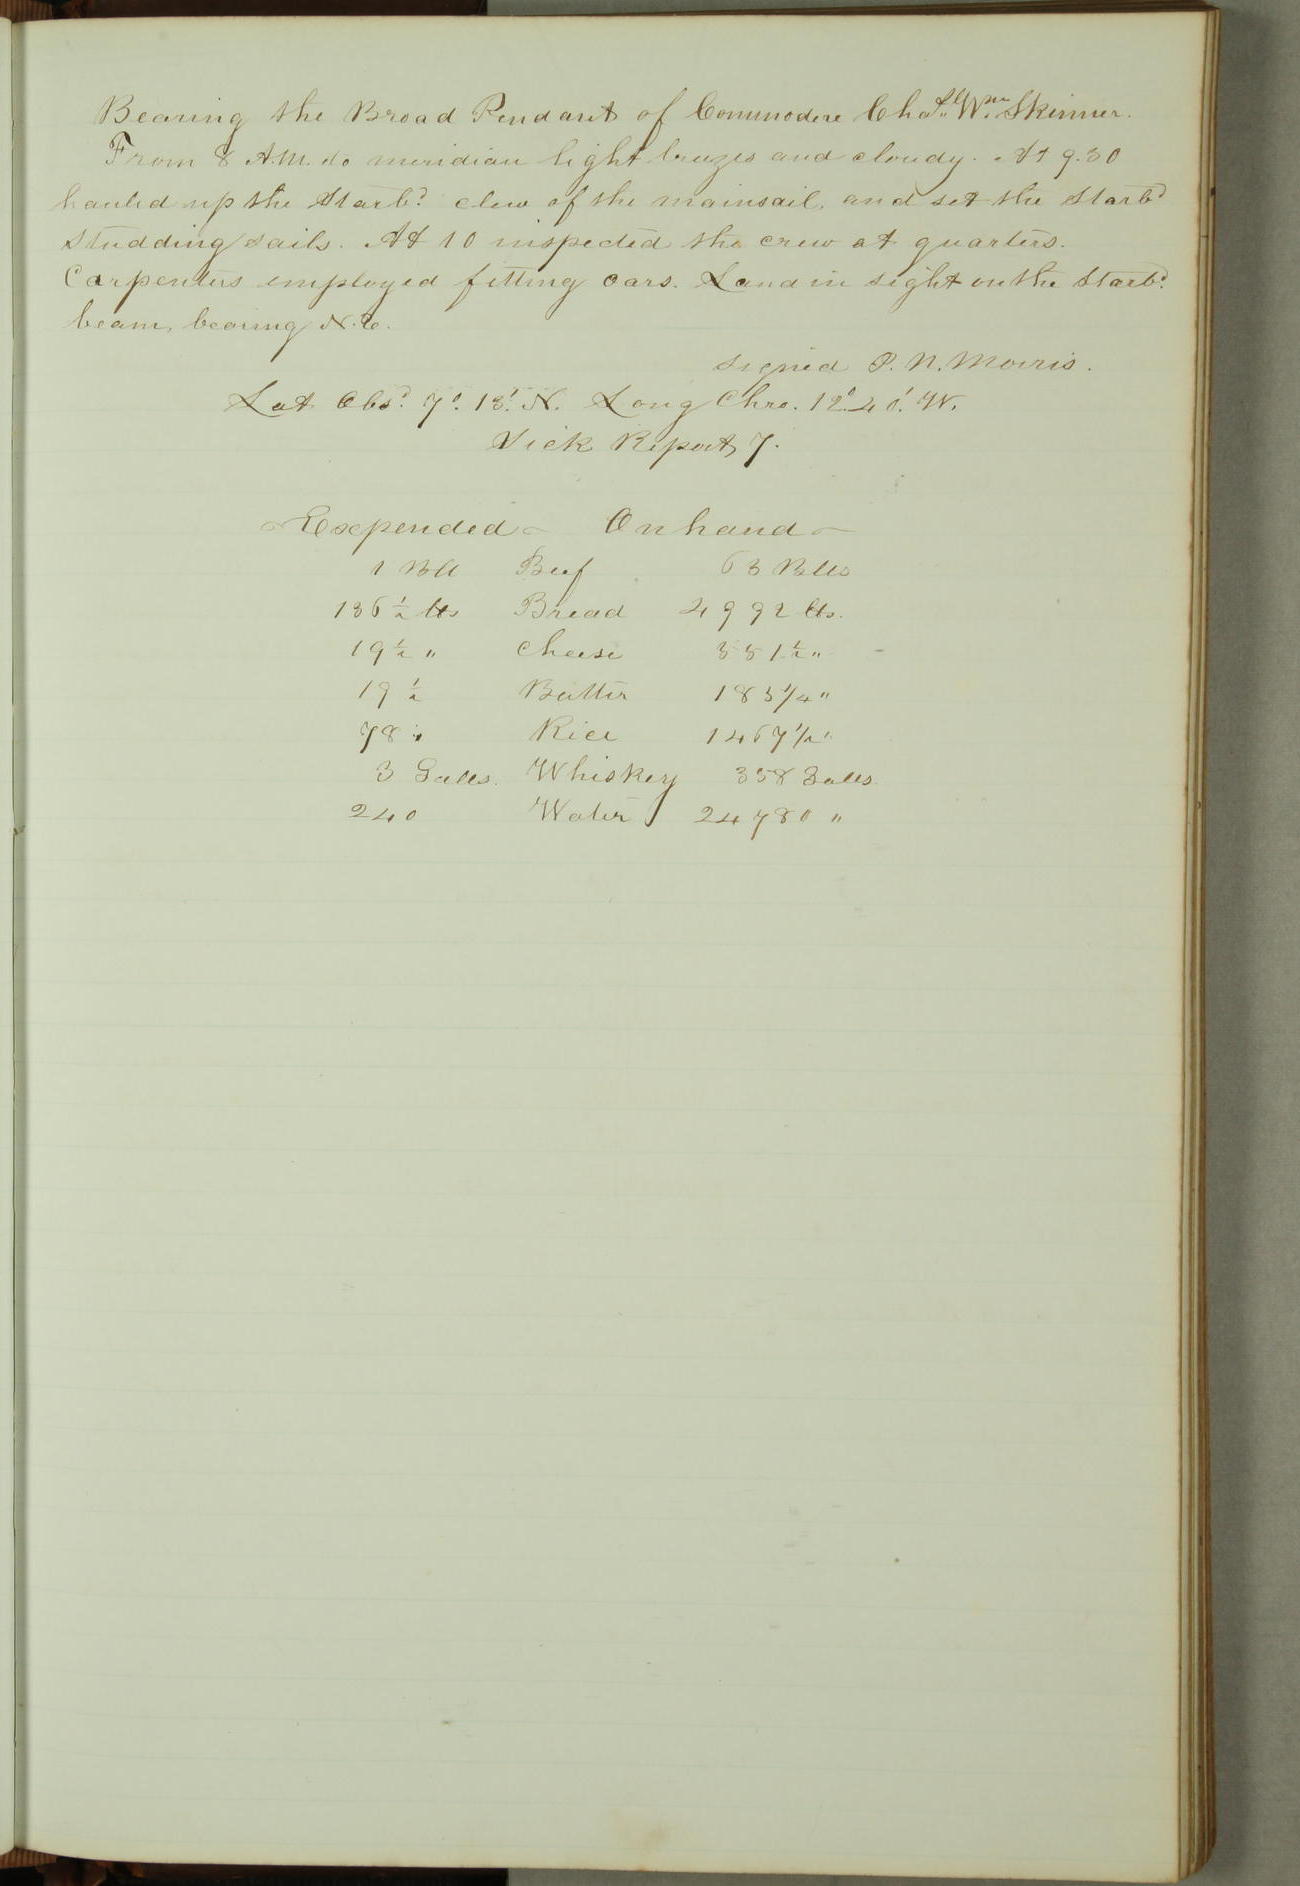 Bearing the Broad Pendant of Commodore Chas. Wm. Skinner.
From 8 A.M. to meridian light breezes and cloudy. At 9.30
hauled up the Starbd. clew of the mainsail, and set the Starbd
Studding sails. At 10 inspected the crew at quarters.
Carpenters employed fitting oars. Land in sight on the Starbd.
beam, bearing N.E.
signed P. N. Morris.
Lat Obsd. 7°. 13'. N. Long Chro. 12° 40'. W.
Sick Report 7.
Expended On hand
1 Bll Beef 63 Blls
136 ½ lbs Bread 4992 lbs.
19 ½ " Cheese 351 ½ "
19 ½ Butter 183 ¼ "
78 " Rice 1467 ½ "
3 Galls. Whiskey 358 Galls.
240 Water 24780 "